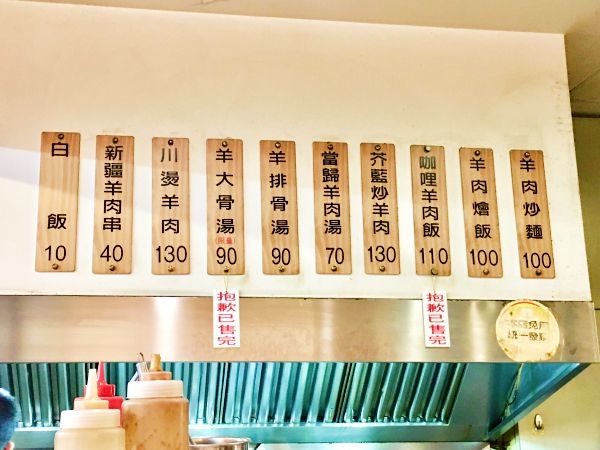 羊肉炒麵
100
羊肉燴飯
100
咖哩羊肉飯
110
抱歉已售完
芥藍炒羊肉
130
當歸羊肉湯
70
羊排骨湯
90
羊大骨湯
(限量)
90
抱歉已售完
川燙羊肉
130
新疆羊肉串
40
白飯
10
統一發票